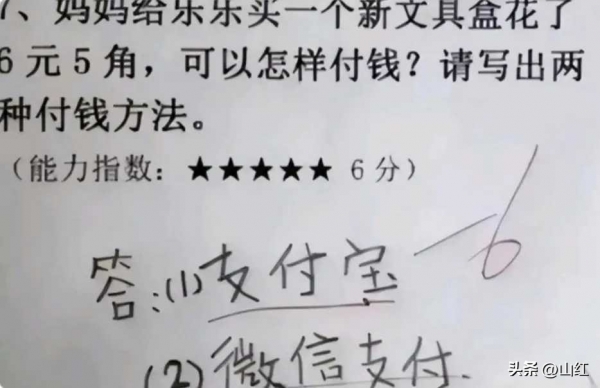 7、妈妈给乐乐买一个新文具盒花了
6元5角，可以怎样付钱？请写出两
种付钱方法。
（能力指数：★★★★★ 6分）
-6
答:(1)支付宝
(2)微信支付.
头条 @山红